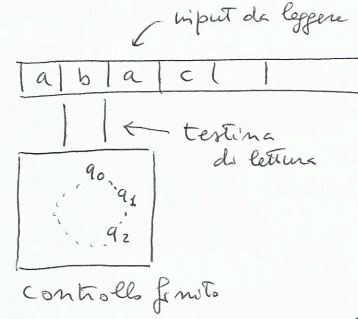 input da leggere
a b a c
testina
di lettura
q0
q1
q2
controllo finito